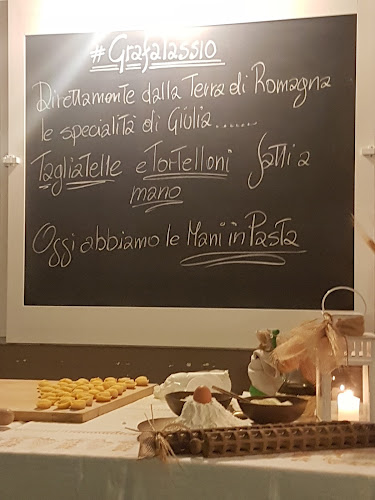 #Grafalassio
Direttamente dalla Terra di Romagna
le specialità di Giulia.......
Tagliatelle e Tortelloni fatti a
mano
Oggi abbiamo le Mani in Pasta